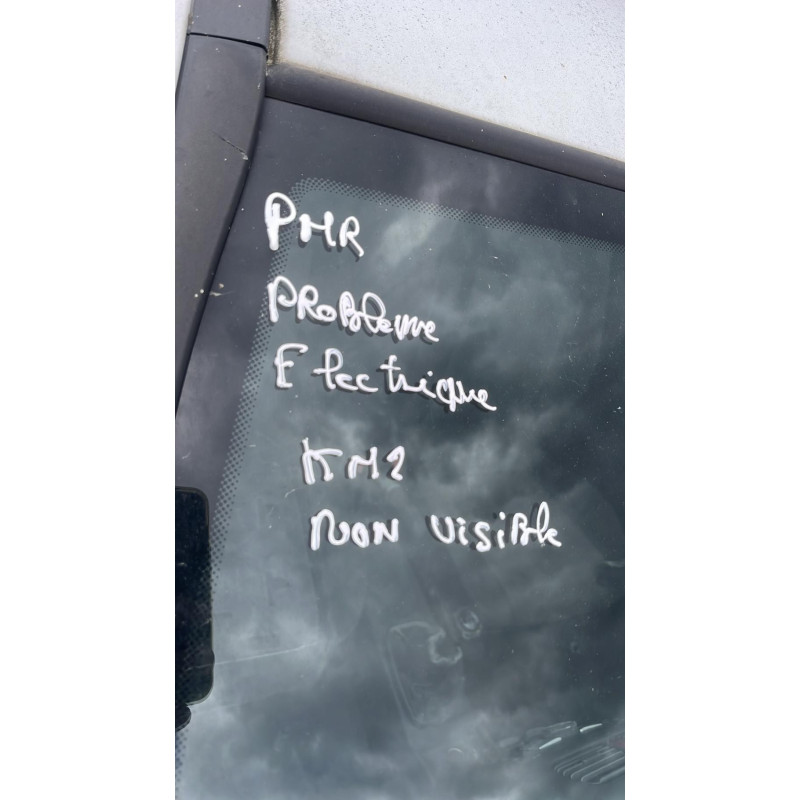 PMR
PROBleme
Electrique
KM?
NON VisiBle